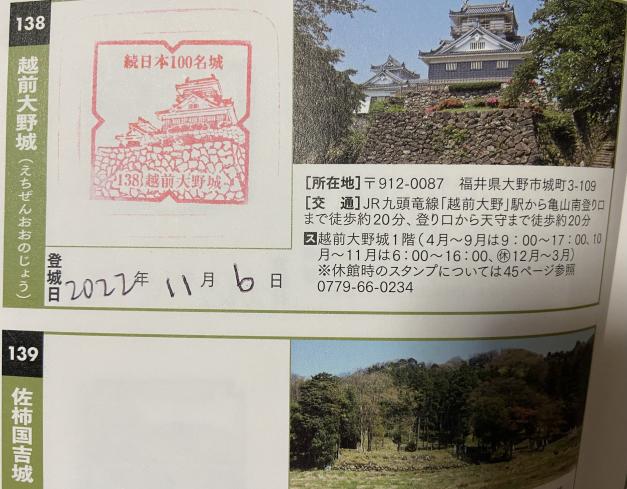 138
越前大野城(えちぜんおおのじょう)
続日本100名城
138 越前大野城
[所在地]〒912-0087 福井県大野市城町3-109
[交 通]JR九頭竜線「越前大野」駅から亀山南登り口
まで徒歩約20分、登り口から天守まで徒歩約20分
ス越前大野城1階(4月〜9月は9:00〜17:00、10
月〜11月は6:00〜16:00、㊡12月〜3月)
※休館時のスタンプについては45ページ参照
0779-66-0234
登城日 2022年 11月 6日
139
佐柿国吉城